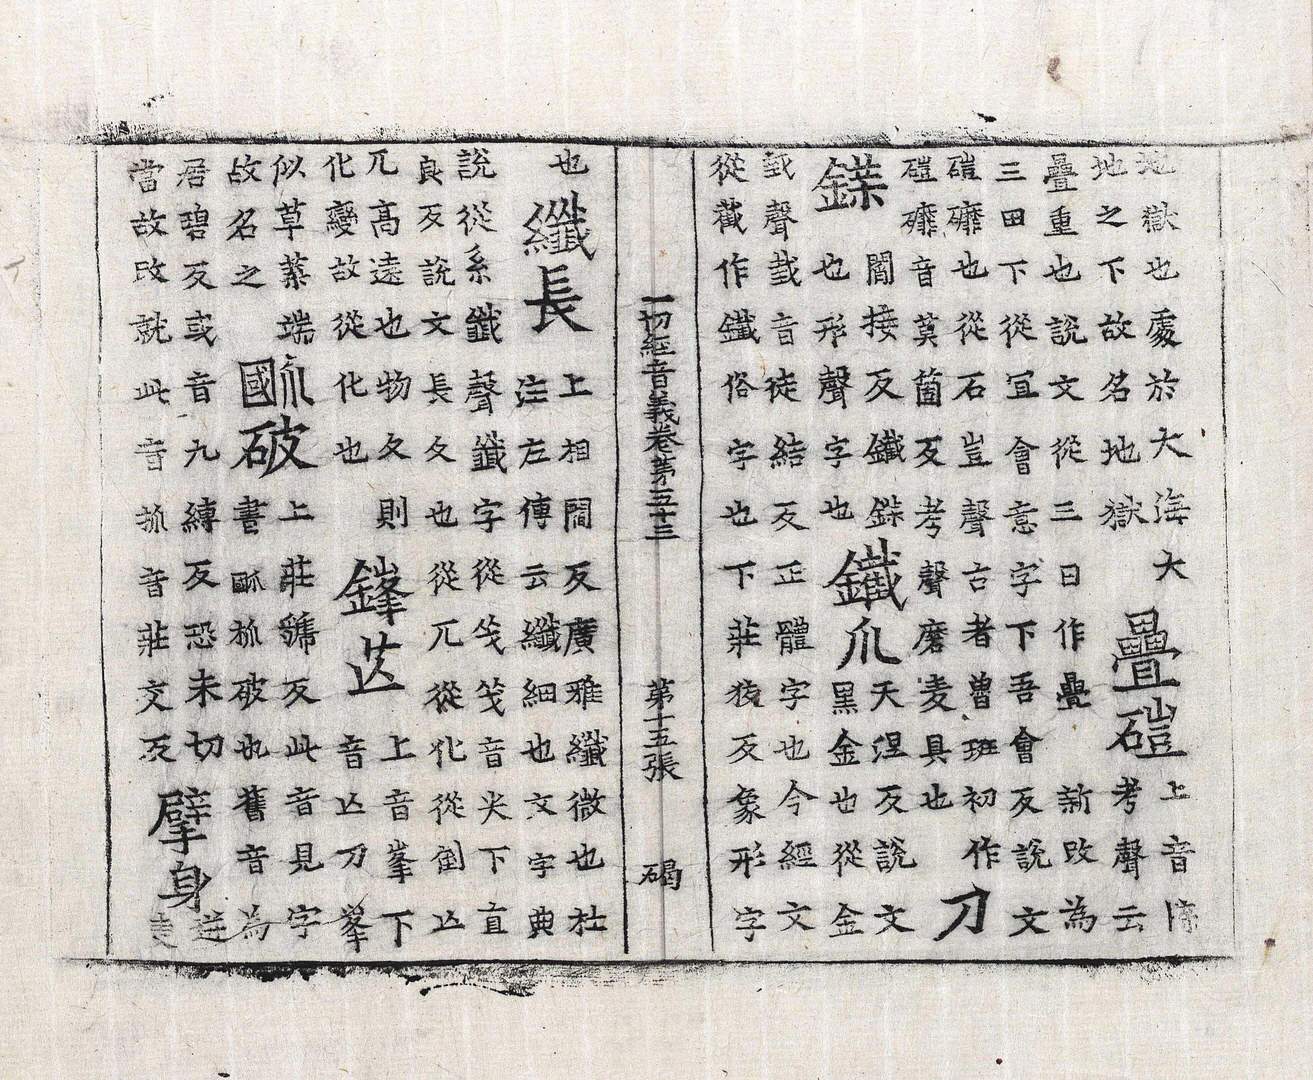 地獄也處於大海大
地之下故名地獄
疊磑
上音牒
考聲云
疊重也說文從三日作疊新改為
三田下從冝會意字下吾會反說文
磑䃺也從石豈聲古者曾班初作
磑䃺音莫箇反考聲磨麦具也
刀
鍱
閻接反鐵鍱
也形聲字也
鐵爪
天涅反說文
黑金也從金
𢧜聲𢧜音徒結反正體字也今經文
從截作鐵俗字也下莊狡反象形字
一切經音義卷第五十三
第十五張
碣
也
纖長
上相閻反廣雅纖微也杜
注左傳云纖細也文字典
說從系韱聲韱字從㦰㦰音尖下直
良反說文長久也從兀從化從倒亾
兀高遠也物久則
化變故從化也
鋒芒
上音峯下
音亾刀峯
似草蘂端
故名之
⿰國爪破
上莊虢反此音見字
書⿰國爪抓破也舊音為
居碧反或音九縛反恐未切
當故改就此音抓音莊交反
擘身